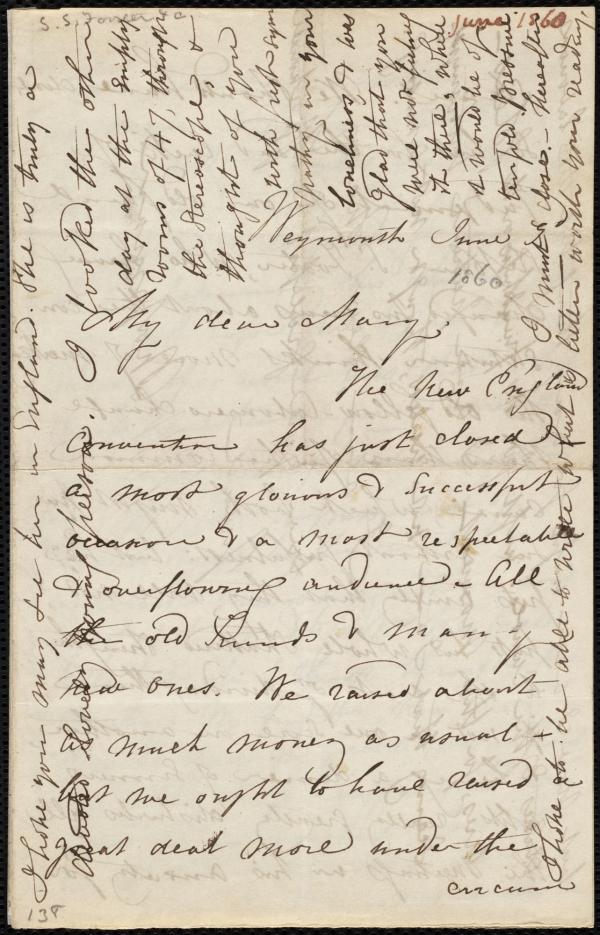 June 1860
Weymouth June
1860
My dear Mary,
The New England
convention has just closed
a most glorious & successful
occasion & a most respectable
& overflowing audience - All
the old friends & many
new ones. We raised about
as much money as usual -
but we ought to have raised a
great deal more under the
circum
I hope you may see her in England. She is truly a
lovely young person. I looked the other
day at the empty
rooms of 47, through
the stereoscope, &
thought of you
with just sym
pathy in your
loneliness & was
glad that you
were not feeling
it there, where
it would be of
tenfold pressure
I must close. - Hereafter
I hope to be able to write what is better worth your reading.
138